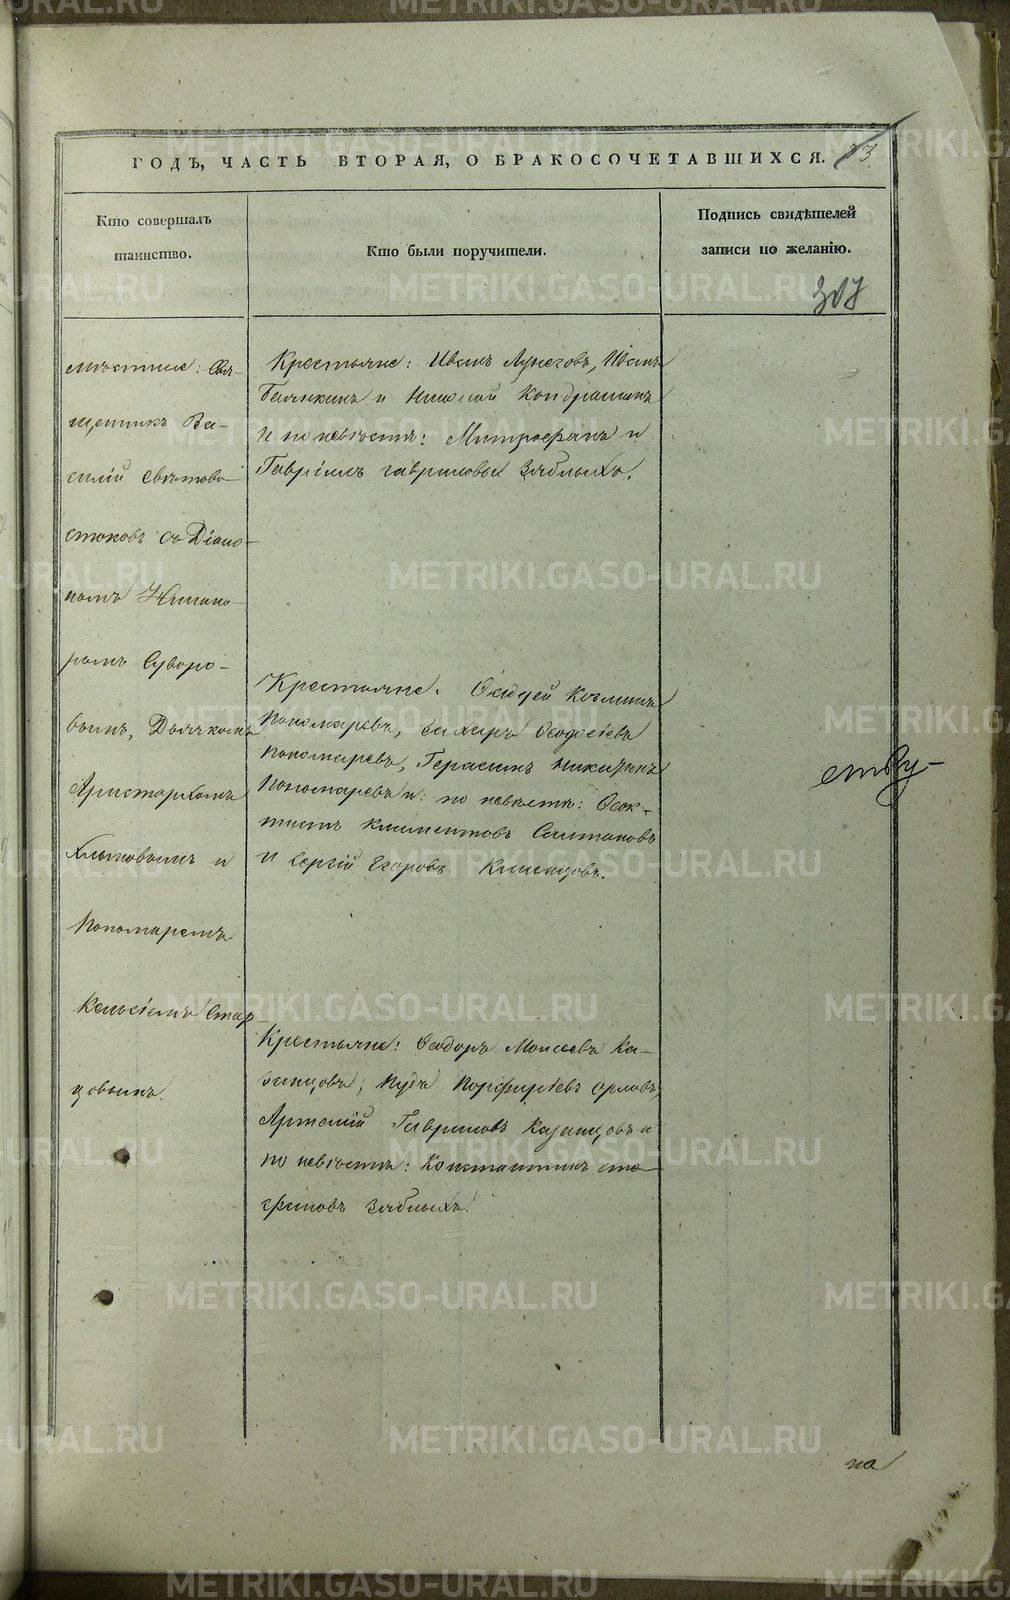 ГОДЪ, ЧАСТЬ ВТОРАЯ, О БРАКОСОЧЕТАВШИХСЯ.
Кто совершалъ
таинство.
Кто были поручители.
Подпись свидѣтелей
записи по желанію.
307
мѣстные: Свя-
щенникъ Ва-
силій Свѣтово-
стоковъ съ Діако-
номъ Никано-
ромъ Суворо-
вымъ, Дьячкомъ
Аристархомъ
Хлыновымъ и
Пономаремъ
Кельсіемъ Стар-
цовымъ.
Крестьяне: Иванъ Лунеговъ, Иванъ
и Николай Кондрашинъ
и по невѣстѣ: Митрофанъ и
Гавріилъ Гавриловы Зяблыхъ.
Крестьяне: Козминъ
Пономаревъ, Захаръ Ѳеодосіевъ
Пономаревъ, Герасимъ Никитинъ
Пономаревъ и по невѣстѣ: Ѳеок-
тистъ Климентовъ Салтановъ
и Сергій Егоровъ
Крестьяне: Ѳеодоръ Моисеевъ Ка-
занцовъ, Нудъ Порфирьевъ Орловъ,
Артемій Гавриловъ Казанцовъ и
по невѣстѣ: Константинъ Сте-
фановъ Зяблыхъ.
ству-
на
METRIKI.GASO-URAL.RU